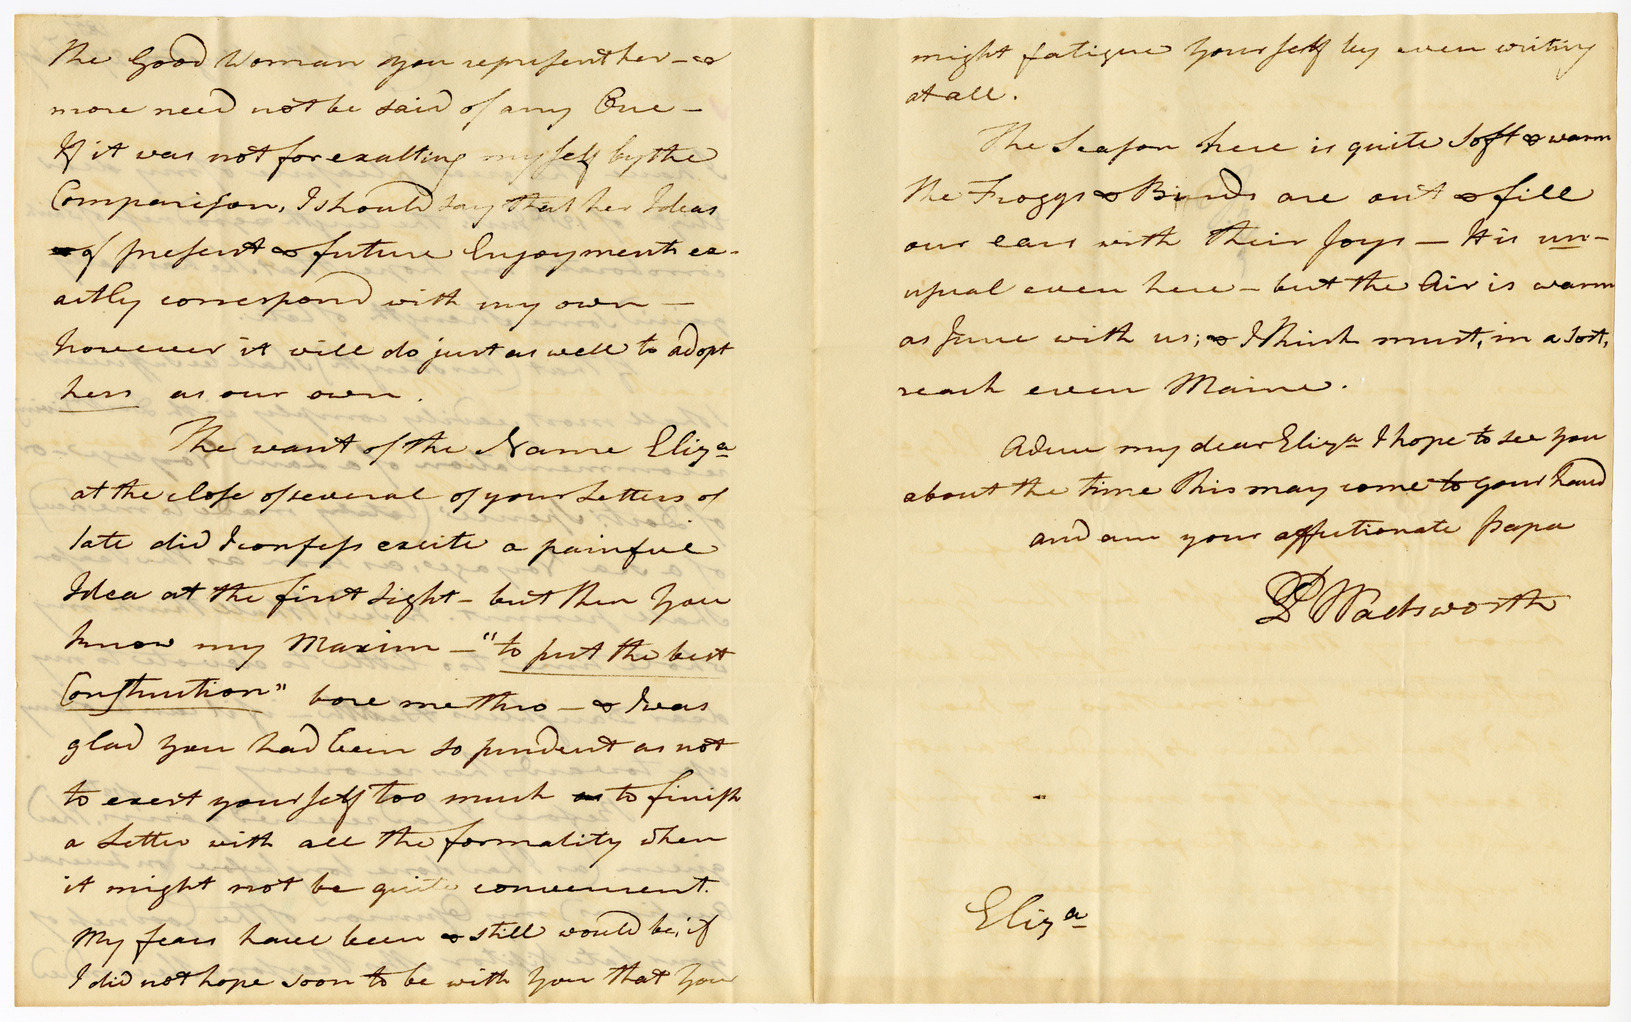 the Good Woman you represent her — &
more need not be said of any One —
If it was not for exalting myself by the
Comparison, I should say that her Ideas
of present & future Enjoyments ex-
actly correspond with my own —
however it will do just as well to adopt
hers as our own.
The want of the Name Eliza
at the close of several of your Letters of
late did I confess excite a painful
Idea at the first sight — but then you
know my Maxim — "to put the best
Construction" bore me thro — & I was
glad you had been so prudent as not
to exert yourself too much to finish
a Letter with all the formality when
it might not be quite convenient.
My fears have been & still would be, if
I did not hope soon to be with you that you
might fatigue yourself by even writing
at all.
The Season here is quite soft & warm
the Froggs & Birds are out & fill
our ears with their Joys — It is un-
usual even here — but the Air is warm
as June with us; & I think must, in a sort,
reach even Maine.
Adieu my dear Eliza I hope to see you
about the time this may come to your hand
and am your affectionate Papa
P Wadsworth
Eliza